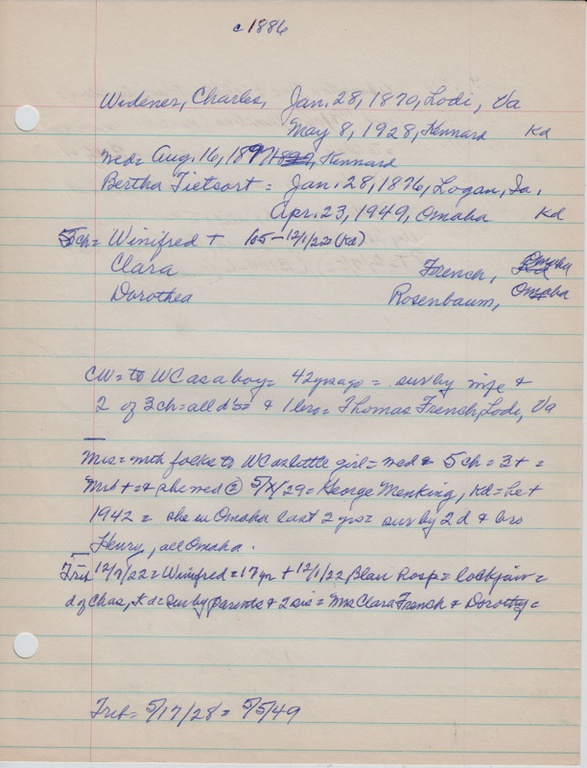 c1886
Widener, Charles, Jan. 28, 1870, Lodi, Va
May 8, 1928, Kennard Kd
wed = Aug. 16, 1897, Kennard
Bertha Tietsort = Jan. 28, 1876, Logan, Ia.
Apr. 23, 1949, Omaha Kd
5ch = Winifred + 105 - 12/1/22 (Kd)
Clara French, Omaha
Dorothea Rosenbaum, Omaha
CW = to WC as a boy = 42 yrs ago = sur by wife &
2 of 3 ch = all d's = & 1 bro = Thomas French, Lodi, Va
Mrs = with folks to WC as little girl = wed & 5 ch = 3 + =
Mr + = & she wed ② 5/ /29 = George Menking, Kd = he +
1942 = she in Omaha last 2 yrs = sur by 2 d & bro
Henry, all Omaha.
Trib 12/7/22 = Winifred = 17 yr + 12/1/22 Blair Hosp = lockjaw =
d of Chas, Kd = sur by parents & 2 sis = Mrs Clara French & Dorothy =
Trib = 5/17/28 = 5/5/49